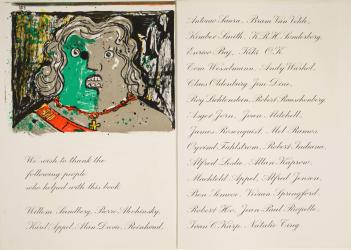 We wish to thank the
following people
who helped with this book
Willem Sandberg, Pierre Alechinsky,
Karel Appel, Alan Davie, Reinhoud,
Antonio Saura, Bram Van Velde,
Kimber Smith, K.R.H. Sonderborg,
Enrico Baj, Kiki O.K.
Tom Wesselmann, Andy Warhol,
Claes Oldenburg, Jim Dine,
Roy Lichtenstein, Robert Rauschenberg,
Asger Jorn, Joan Mitchell,
James Rosenquist, Mel Ramos,
Oyvind Fahlstrom, Robert Indiana,
Alfred Leslie, Allan Kaprow,
Machteld Appel, Alfred Jensen,
Ben Vivian Springford,
Robert Jean-Paul Riopelle,
Ivan C Karp, Natalie